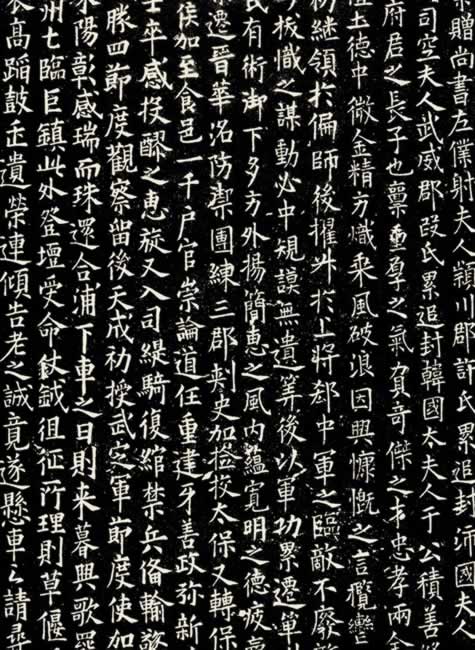 贈尚書左僕射夫人潁川郡許氏累追封沛國夫人
司空夫人武威郡段氏累追封韓國太夫人于公積善
府君之長子也稟重厚之氣負奇傑之才忠孝兩全
土德中微金精方熾乘風破浪因興慷慨之言攬轡
初繼領於偏師後擢昇於上將郄中軍之臨敵不廢
拔幟之謀動必中規謨無遺筭後以軍功累遷單
民有術御下多方外揚簡恵之風內蘊寬明之德疲
遷晉華洺防禦團練三郡刺史加撿挍太保又轉保
侯加至食邑一千戶官崇論道任重建牙善政弥新
士卒感投醪之恵旋又入司緹騎復綰禁兵俻輸
滕四節度觀察留後天成初授武定軍節度使加
陽彰感瑞而珠還合浦下車之日則来暮興歌
州七臨巨鎮此外登壇受命仗鉞徂征所理則草偃
高蹈鼓缶遺榮連傾告老之誠竟遂懸車之請尋